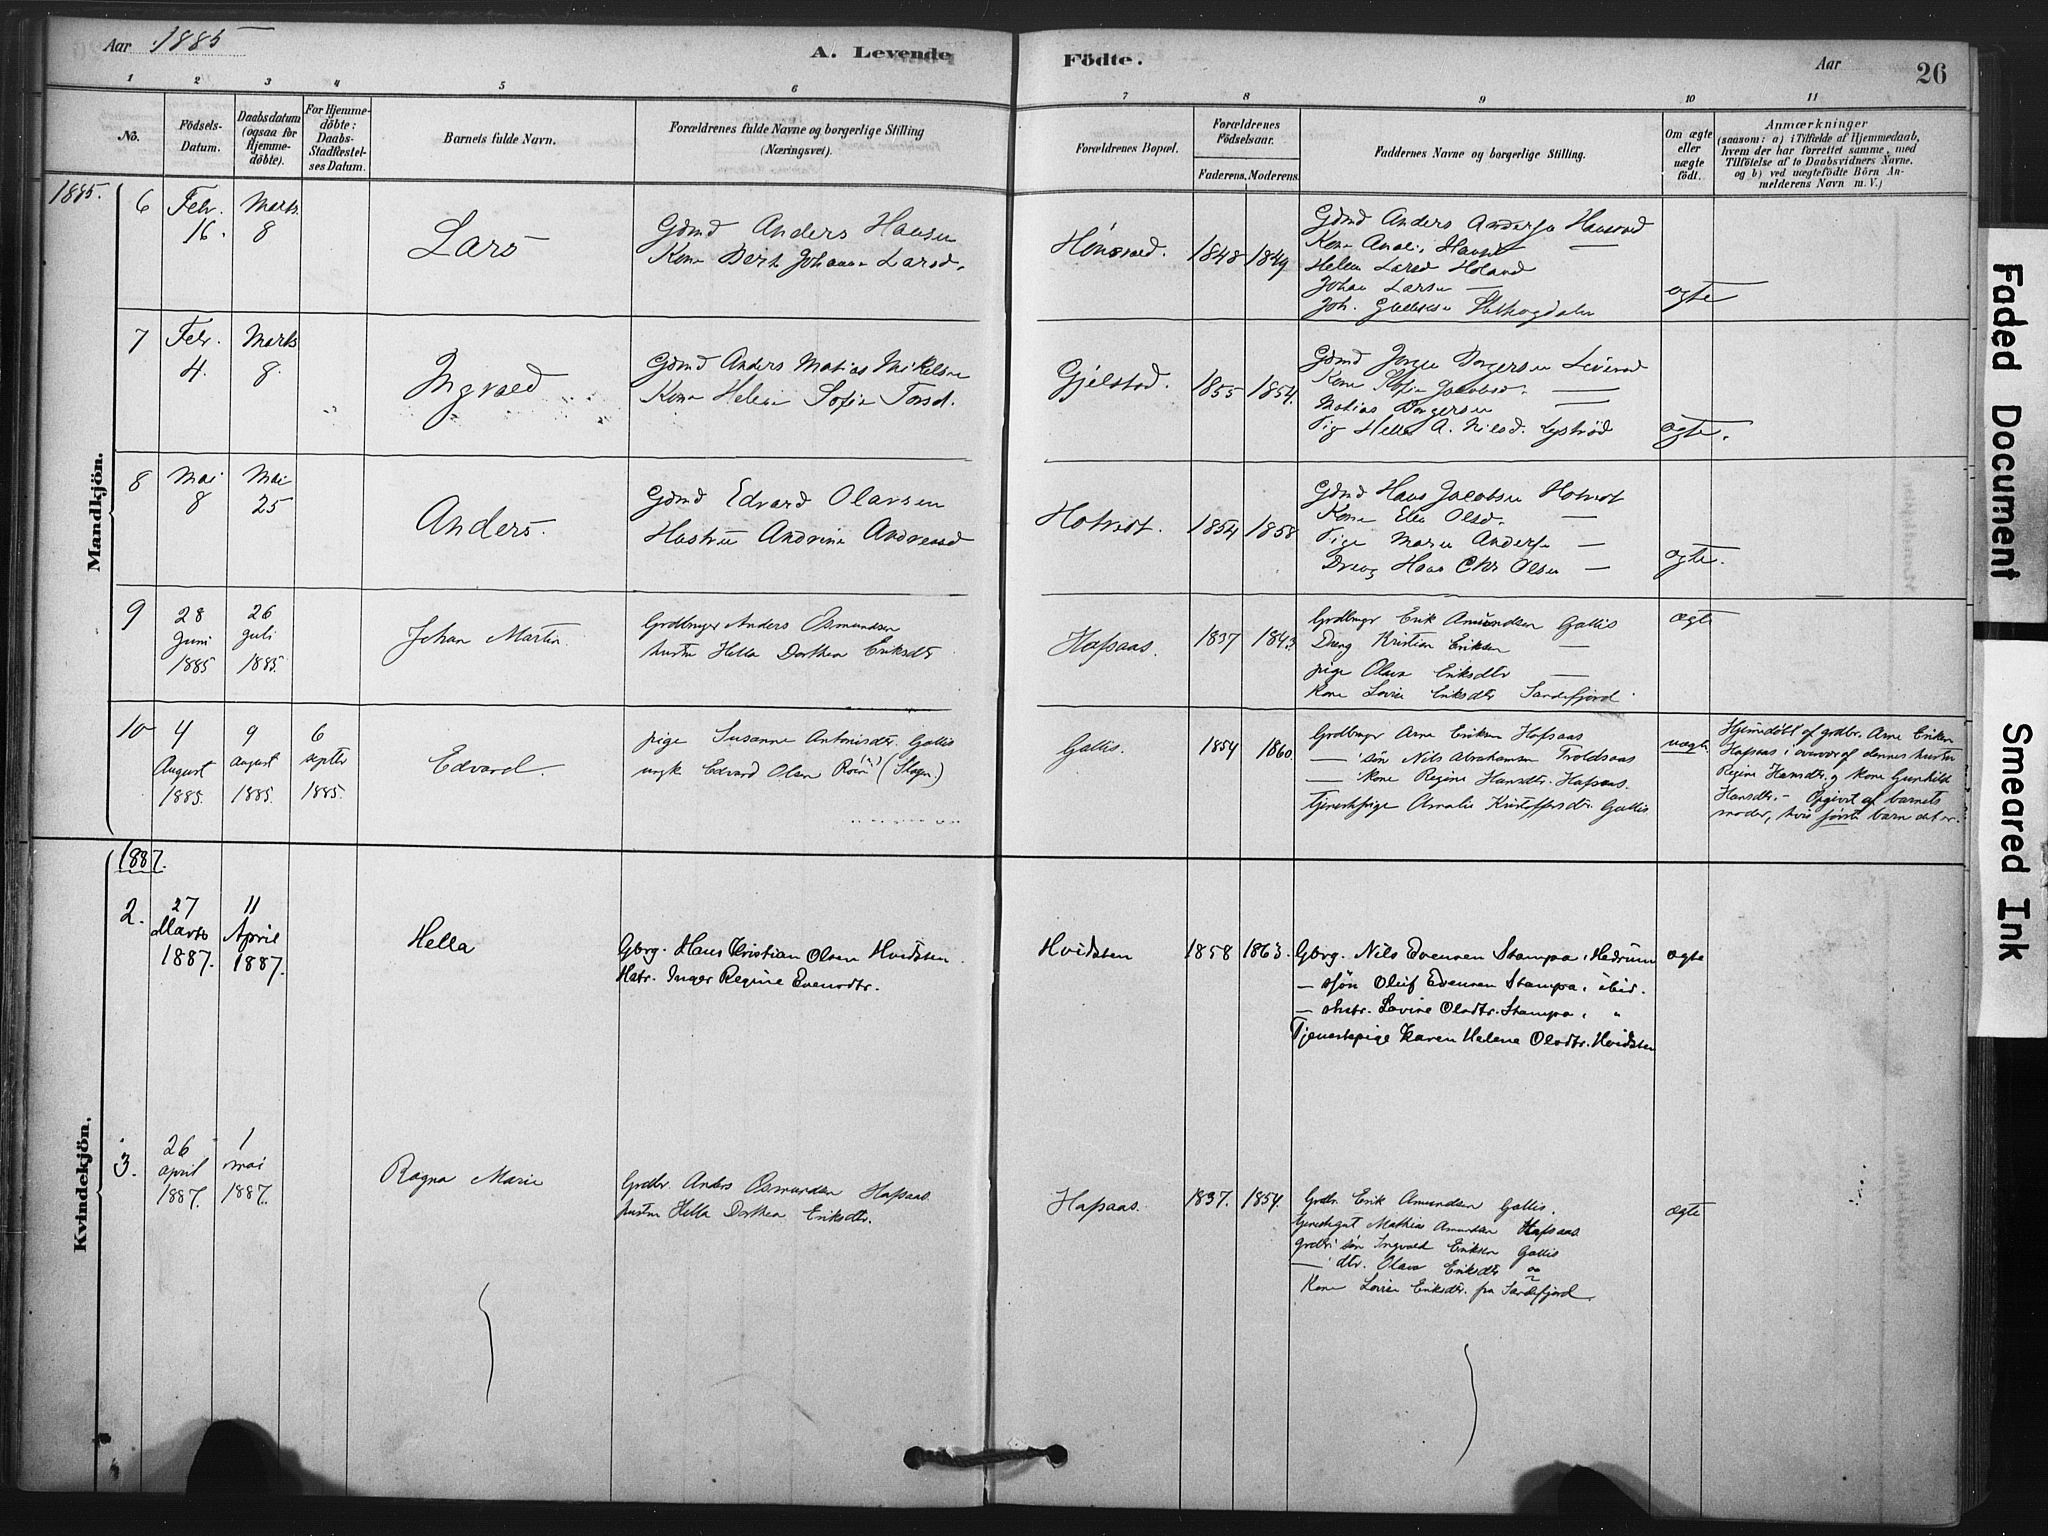 Aar 1885
A. Levende Födte.
Aar
26
1 2 3 4 5 6 7 8 9 10 11
No.
Födsels-
Datum.
Daabsdatum
(ogsaa for
Hjemme-
döbte).
For Hjemme-
döbte:
Daabs-
Stadfæstel-
ses Datum.
Barnets fulde Navn.
Forældrenes fulde Navne og borgerlige Stilling
(Næringsvei).
Forældrenes Bopæl.
Forældrenes
Födselsaar.
Faderens. Moderens.
Faddernes Navne og borgerlige Stilling.
Om ægte
eller
uægte
født.
Anmærkninger
(saasom: a) i Tilfælde af Hjemmedaab,
hvem der har forrettet samme, med
Tilföielse af to Daabsvidners Navne.
og b) ved uægtefödte Börn An-
melderens Navn m. V.)
Mandkjön.
1885.
6
Febr.
16.
Marts
8
Lars
Gdmd Anders Hansen
Kone Berth Johanne Larsd.
1848 1849
Gdmd Anders Andersen
Kone
Helene Larsd Holand
Johan Larsen —
ægte
7
Febr.
4.
Marts
8.
Ingvald
Gdmd Anders Matias Mikelsen
Kone Helene Sofie
Gjelstad.
1855 1854.
Gdmd
Kone Sofie Jacobsd. —
Matias
Pig Helle A. Nilsd.
ægte.
8
Mai
8
Mai
25
Anders.
Gdmd Edvard Olavsen
Hustru Andrine Andreasd
Hotvedt.
1854 1858
Gdmd Hans Jacobsen Hotvedt
Kone Olsd. —
Pige Maren Anders —
Dreng Hans Chr Olsen —
ægte.
9
28
Juni
1885
26
Juli
1885.
Johan Martin
Grdbruger Anders Osmundsen
hustru Hella Dorthea Eriksdtr
Hafsaas.
1837 1843
Grdbrugr Erik Amundsen Gallis
Dreng Kristian Eriksen —
pige Olava Eriksdtr —
Kone Lovise Eriksdtr Sandefjord.
ægte
10
4
August
1885.
9
august
1885.
6
septbr
1885.
Edvard.
pige Susanne Antonisdtr. Gallis
ungk Edvard Olsen
Gallis.
1854 1860.
Grdbruger Arne Eriksen Hafsaas
— søn Nils Abrahamsen Troldsaas
— kone Regine Hansdtr. Hafsaas.
tjenestepige Amalie Kristoffersdtr. Gallis
uægte
Hjemdøbt af grdbr. Arne Eriksen
Hafsaas i overvær af dennes hustru
Regine Hansdtr. og kone Gunhild
Hansdtr. – Opgivet af barnets
moder, hvis første barn det er.
Kvindekjön.
1887.
2.
27
Marts
1887.
11
April
1887.
Hella
Gbrg. Hans Kristian Olsen Hvidsten.
Hstr. Inger Regine Evensdtr.
Hvidsten
1858 1863.
Gbrg. Nils Evensen Stampa, Hedrum
— søn Oluf Evensen Stampa, ibid.
— hstr. Lovise Olsdtr. Stampa, "
Tjenestepige Karen Helene Olsdtr. Hvidsten
ægte
3.
26
april
1887.
1
mai
1887.
Ragna Marie
Grdbr. Anders Osmundsen Hafsaas.
hustru Hella Dorthea Eriksdtr.
Hafsaas.
1837. 1854.
Grdbr. Erik Amundsen Gallis.
tjenestegut Mathias Amundsen Hafsaas.
grdbr. søn Ingvald Eriksen Gallis
— dtr. Olava Eriksdtr og
Kone Lovise Eriksdtr. fra Sandefjord.
ægte
Faded Document
Smeared Ink